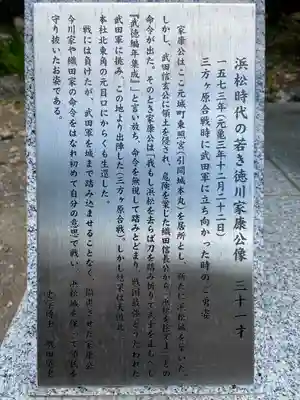 浜松時代の若き徳川家康公像　三十一才
一五七三年(元亀三年十二月二十二日)
三方ヶ原合戦時に武田軍に立ち向かった時のご勇姿
家康公はここ元城町東照宮(引間城本丸)を居所とし、新たに浜松城を築いた。
しかし、武田信玄公に領土を侵され、危険を案じた織田信長公から、浜松を捨てよとの
命令が出た。そのとき家康公は「我もし浜松を去らば刀を踏み折りて武士を止むべし
『武徳編年集成』」と言い放ち、命令を無視して踏みとどまり、戦国最強とうたわれた
武田軍に挑み、この地より出陣した(三方ヶ原合戦)。しかし結果は大敗北
本社北東角の元目口にからくも生還した。
戦には負けたが、武田軍を城まで踏み込ませることなく、
今川家や織田家の命令をはなれ初めて自分の意思で戦い、浜松城を
守り抜いたお姿である。